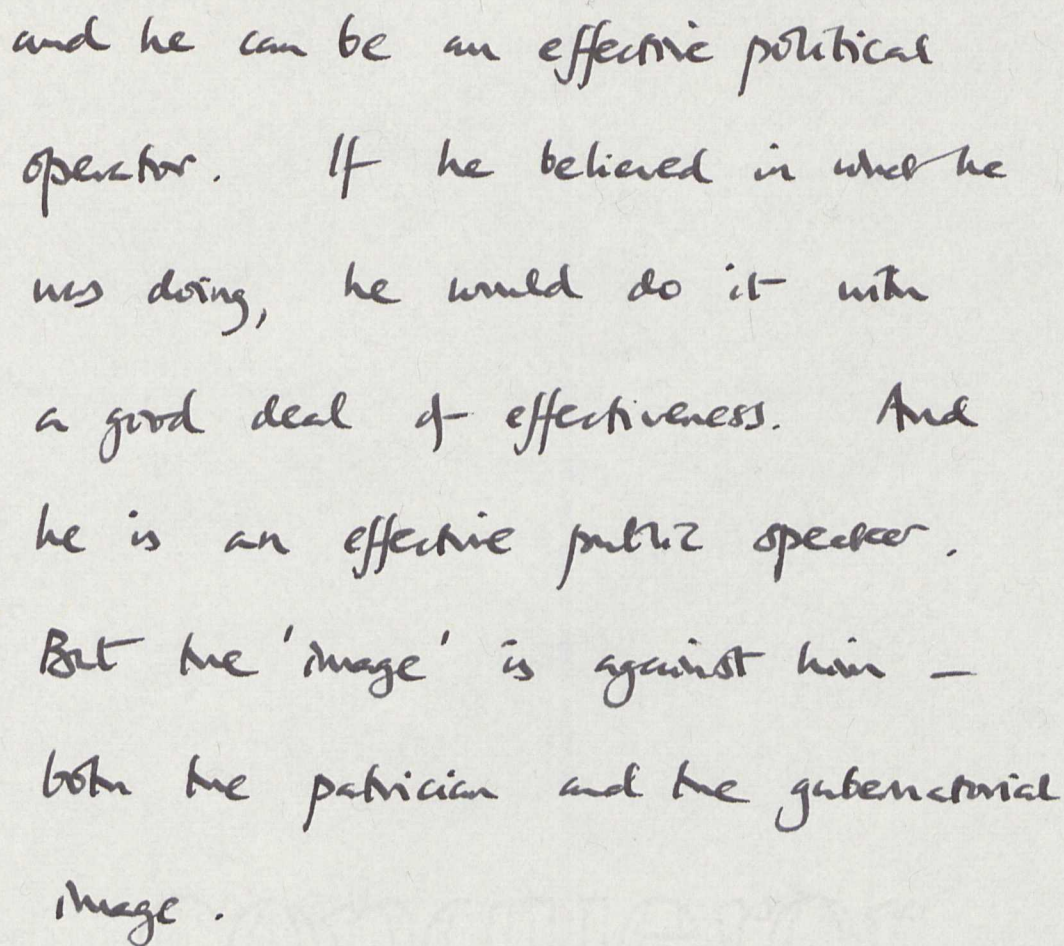 and he can be an effective political
operator. If he believed in what he
was doing, he would do it with
a good deal of effectiveness. And
he is an effective public speaker.
But the 'image' is against him –
both the patrician and the gubernatorial
image.